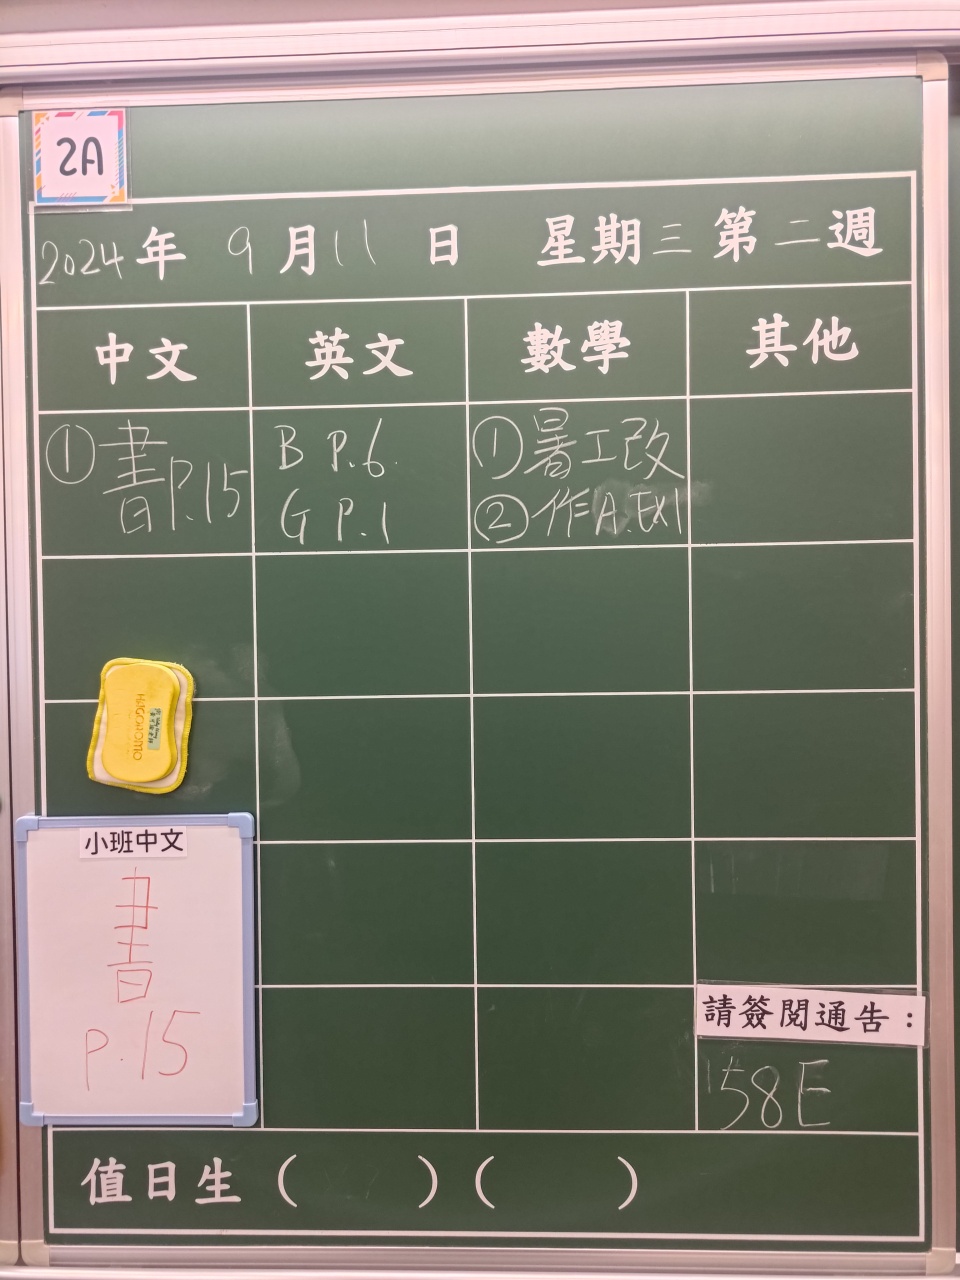 2A
2024年 9月11日 星期三第二週
中文 英文 數學 其他
①書P.15
B P.6
G P.1
①暑工改
②作A.EX1
HAGOROMO
小班中文
書
P.15
請簽閱通告：
58E
值日生（ ）（ ）